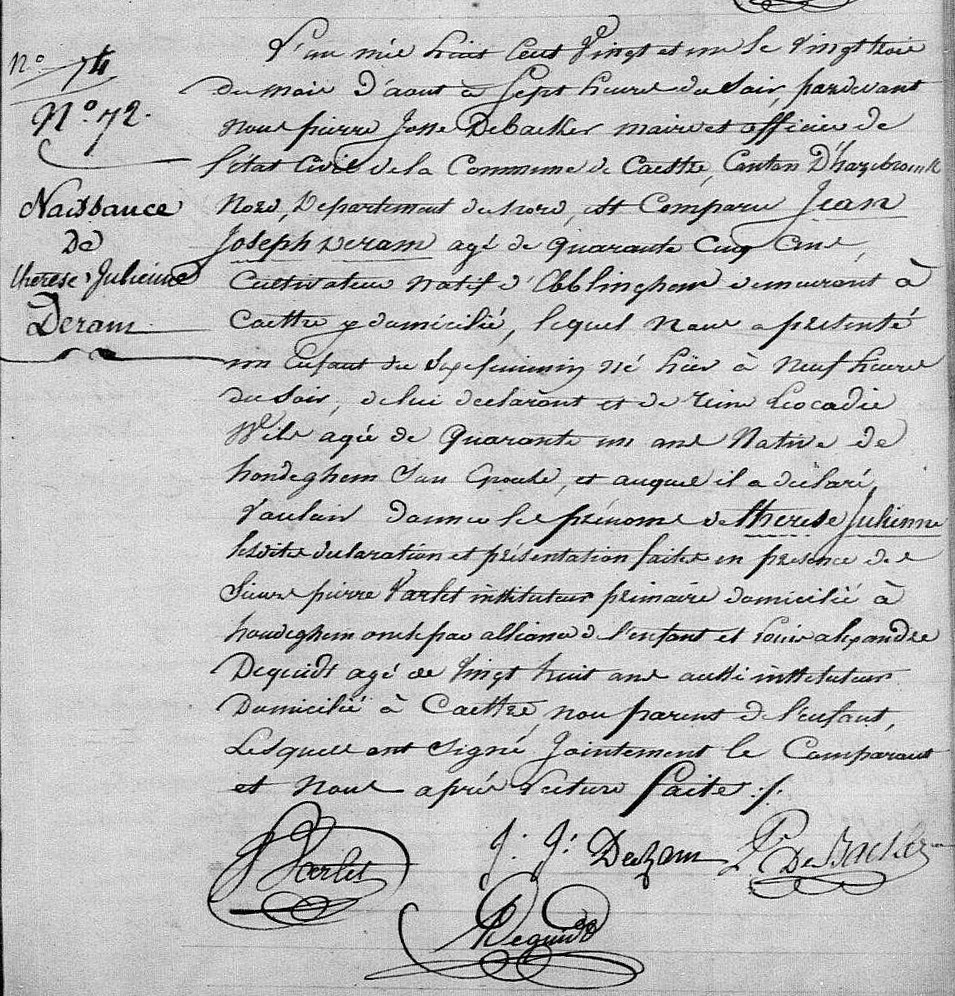 N.o 74
N.o 72.
Naissance
De
therese Julienne
Deram
L'an mil huit Cent Vingt et un le Vingt trois
Du mois D'aout à Sept heures du Soir, pardevant
Nous pierre Josse DeBacker maire et officier de
l'état Civil de la Commune de Caestre, Canton D'hazebrouck
Nord, Departement du Nord, est Comparu Jean
Joseph Deram agé de quarante Cinq ans,
Cultivateur Natif d'Ebblinghem demeurant à
Caestre y domicilié, lequel Nous a présenté
un Enfant du Sexe feminin né hier à Neuf heures
du Soir, de lui déclarant et de reine Leocadie
Wils agée de Quarante un ans Native de
hondeghem Son Epouse, et auquel il a déclaré
Vouloir donner les prénoms de therese Julienne
lesdites declaration et présentation faites en présence des
Sieurs pierre Varlet instituteur primaire domicilié à
hondeghem oncle par alliance de l'enfant et Louis alexandre
Dequidt agé de Vingt huit ans aussi instituteur
Domicilié à Caestre, non parent de l'enfant,
Lesquels ont Signé Jointement le Comparant
et Nous après Lecture faite ./.
P Varlet
J. J. Deram
P. J. DeBacker
Dequidt